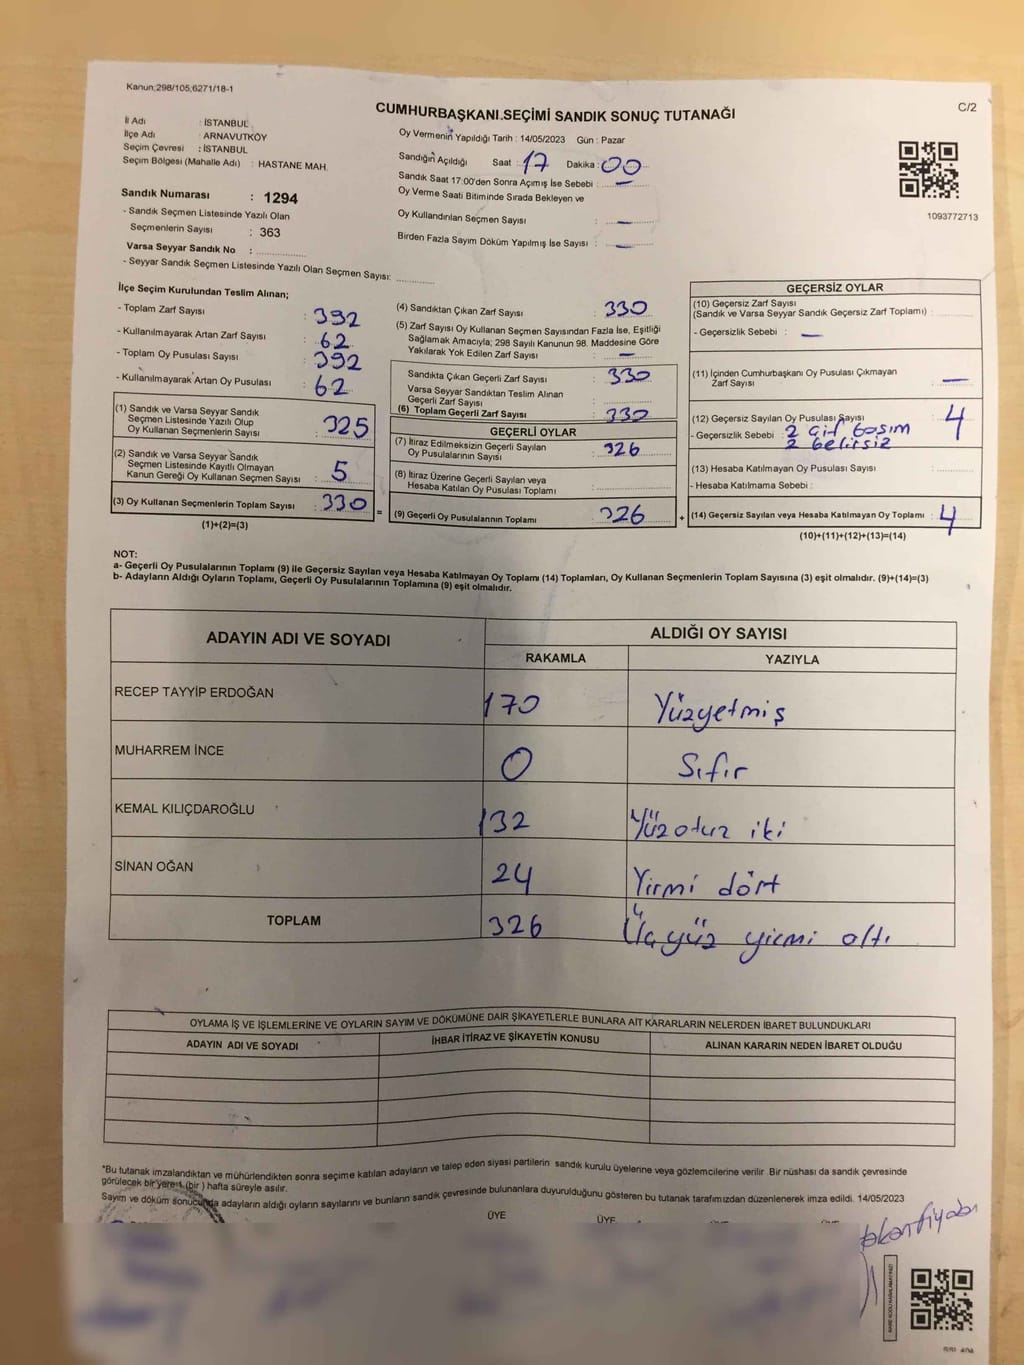 Kanun:298/105;6271/18-1
C/2
CUMHURBAŞKANI SEÇİMİ SANDIK SONUÇ TUTANAĞI
İl Adı : İSTANBUL
İlçe Adı : ARNAVUTKÖY
Seçim Çevresi : İSTANBUL
Seçim Bölgesi (Mahalle Adı) : HASTANE MAH.
Sandık Numarası : 1294
- Sandık Seçmen Listesinde Yazılı Olan
Seçmenlerin Sayısı : 363
Varsa Seyyar Sandık No :
- Seyyar Sandık Seçmen Listesinde Yazılı Olan Seçmen Sayısı:
Oy Vermenin Yapıldığı Tarih : 14/05/2023 Gün : Pazar
Sandığın Açıldığı Saat : 17 Dakika : 00
Sandık Saat 17:00'den Sonra Açılmış İse Sebebi : —
Oy Verme Saati Bitiminde Sırada Bekleyen ve
Oy Kullandırılan Seçmen Sayısı : —
Birden Fazla Sayım Döküm Yapılmış İse Sayısı : —
1093772713
İlçe Seçim Kurulundan Teslim Alınan;
- Toplam Zarf Sayısı : 392
- Kullanılmayarak Artan Zarf Sayısı : 62
- Toplam Oy Pusulası Sayısı : 392
- Kullanılmayarak Artan Oy Pusulası : 62
(1) Sandık ve Varsa Seyyar Sandık
Seçmen Listesinde Yazılı Olup
Oy Kullanan Seçmenlerin Sayısı : 325
(2) Sandık ve Varsa Seyyar Sandık
Seçmen Listesinde Kayıtlı Olmayan
Kanun Gereği Oy Kullanan Seçmen Sayısı : 5
(3) Oy Kullanan Seçmenlerin Toplam Sayısı : 330
(1)+(2)=(3)
=
(4) Sandıktan Çıkan Zarf Sayısı : 330
(5) Zarf Sayısı Oy Kullanan Seçmen Sayısından Fazla İse, Eşitliği
Sağlamak Amacıyla; 298 Sayılı Kanunun 98. Maddesine Göre
Yakılarak Yok Edilen Zarf Sayısı : —
Sandıkta Çıkan Geçerli Zarf Sayısı : 330
Varsa Seyyar Sandıktan Teslim Alınan
Geçerli Zarf Sayısı :
(6) Toplam Geçerli Zarf Sayısı : 330
GEÇERLİ OYLAR
(7) İtiraz Edilmeksizin Geçerli Sayılan
Oy Pusulalarının Sayısı : 326
(8) İtiraz Üzerine Geçerli Sayılan veya
Hesaba Katılan Oy Pusulası Toplamı :
(9) Geçerli Oy Pusulalarının Toplamı : 326
+
GEÇERSİZ OYLAR
(10) Geçersiz Zarf Sayısı
(Sandık ve Varsa Seyyar Sandık Geçersiz Zarf Toplamı) :
- Geçersizlik Sebebi : —
(11) İçinden Cumhurbaşkanı Oy Pusulası Çıkmayan
Zarf Sayısı : —
(12) Geçersiz Sayılan Oy Pusulası Sayısı : 4
- Geçersizlik Sebebi : 2 Çift basım
2 belirsiz
(13) Hesaba Katılmayan Oy Pusulası Sayısı :
- Hesaba Katılmama Sebebi :
(14) Geçersiz Sayılan veya Hesaba Katılmayan Oy Toplamı : 4
(10)+(11)+(12)+(13)=(14)
NOT:
a- Geçerli Oy Pusulalarının Toplamı (9) ile Geçersiz Sayılan veya Hesaba Katılmayan Oy Toplamı (14) Toplamları, Oy Kullanan Seçmenlerin Toplam Sayısına (3) eşit olmalıdır. (9)+(14)=(3)
b- Adayların Aldığı Oyların Toplamı, Geçerli Oy Pusulalarının Toplamına (9) eşit olmalıdır.
ADAYIN ADI VE SOYADI
ALDIĞI OY SAYISI
RAKAMLA YAZIYLA
RECEP TAYYİP ERDOĞAN 170 Yüzyetmiş
MUHARREM İNCE 0 Sıfır
KEMAL KILIÇDAROĞLU 132 Yüzotuz iki
SİNAN OĞAN 24 Yirmi dört
TOPLAM 326 Üçyüz yirmi altı
OYLAMA İŞ VE İŞLEMLERİNE VE OYLARIN SAYIM VE DÖKÜMÜNE DAİR ŞİKAYETLERLE BUNLARA AİT KARARLARIN NELERDEN İBARET BULUNDUKLARI
ADAYIN ADI VE SOYADI İHBAR İTİRAZ VE ŞİKAYETİN KONUSU ALINAN KARARIN NEDEN İBARET OLDUĞU
*Bu tutanak imzalandıktan ve mühürlendikten sonra seçime katılan adayların ve talep eden siyasi partilerin sandık kurulu üyelerine veya gözlemcilerine verilir. Bir nüshası da sandık çevresinde
görülecek bir yere 1 (bir) hafta süreyle asılır.
Sayım ve döküm sonucunda adayların aldığı oyların sayılarını ve bunların sandık çevresinde bulunanlara duyurulduğunu gösteren bu tutanak tarafımızdan düzenlenerek imza edildi. 14/05/2023
ÜYE ÜYE